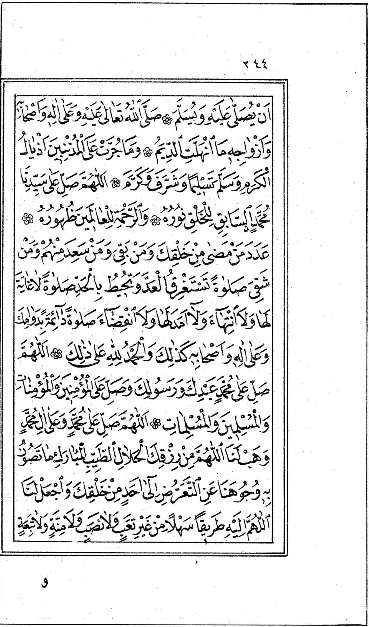 ٢٤٤
اَنْ يُصَلِّىَ عَلَيْهِ وَيُسَلِّمَ ۞ صَلَّى اللّٰهُ تَعَالٰى عَلَيْهِ وَعَلٰى اٰلِهٖ وَاَصْحَابِهٖ
وَاَزْوَاجِهٖ مَا انْهَلَّتِ الدِّيَمُ ۞ وَمَا جُرَّتْ عَلَى الْمُذْنِبِينَ اَذْيَالُ
الْكَرَمِ وَسَلَّمَ تَسْلِيمًا وَشَرَّفَ وَكَرَّمَ ۞ اَللّٰهُمَّ صَلِّ عَلٰى سَيِّدِنَا
مُحَمَّدٍ السَّابِقِ لِلْخَلْقِ نُورُهُ ۞ وَالرَّحْمَةِ لِلْعَالَمِينَ ظُهُورُهُ ۞
عَدَدَ مَنْ مَضٰى مِنْ خَلْقِكَ وَمَنْ بَقِىَ وَمَنْ سَعِدَ مِنْهُمْ وَمَنْ
شَقِىَ صَلٰوةً تَسْتَغْرِقُ الْعَدَّ وَتُحِيطُ بِالْحَدِّ صَلٰوةً لَا غَايَةَ
لَهَا وَلَا انْتِهَاءَ وَلَا اَمَدَ لَهَا وَلَا انْقِضَاءَ صَلٰوةً دَائِمَةً بِدَوَامِكَ
وَعَلٰى اٰلِهٖ وَاَصْحَابِهٖ كَذٰلِكَ وَالْحَمْدُ لِلّٰهِ عَلٰى ذٰلِكَ ۞ اَللّٰهُمَّ
صَلِّ عَلٰى مُحَمَّدٍ عَبْدِكَ وَرَسُولِكَ وَصَلِّ عَلَى الْمُؤْمِنِينَ وَالْمُؤْمِنَاتِ
وَالْمُسْلِمِينَ وَالْمُسْلِمَاتِ ۞ اَللّٰهُمَّ صَلِّ عَلٰى مُحَمَّدٍ وَعَلٰى اٰلِ مُحَمَّدٍ
وَهَبْ لَنَا اللّٰهُمَّ مِنْ رِزْقِكَ الْحَلَالِ الطَّيِّبِ الْمُبَارَكِ مَا تَصُونُ
بِهٖ وُجُوهَنَا عَنِ التَّعَرُّضِ اِلٰى اَحَدٍ مِنْ خَلْقِكَ وَاجْعَلْ لَنَا
اَللّٰهُمَّ اِلَيْهِ طَرِيقًا سَهْلًا مِنْ غَيْرِ تَعَبٍ وَلَا نَصَبٍ وَلَا مِنَّةٍ وَلَا تَبِعَةٍ
و